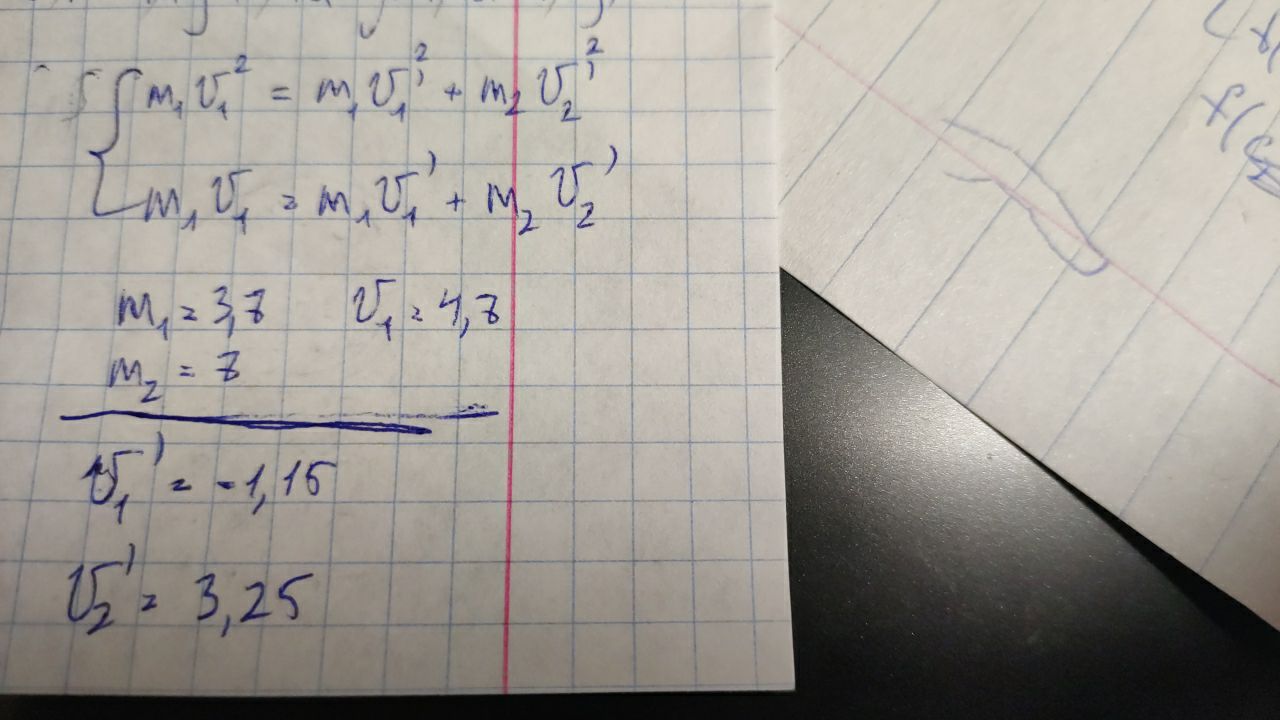 m₁ v₁² = m₁ v₁'² + m₂ v₂'²
m₁ v₁ = m₁ v₁' + m₂ v₂'
m₁ = 3,7 v₁ = 4,7
m₂ = 7
v₁' = -1,15
v₂' = 3,25
f(